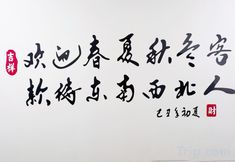 吉祥
欢迎春夏秋冬客人
款待东南西北人
己丑年初夏
财
Trip.com